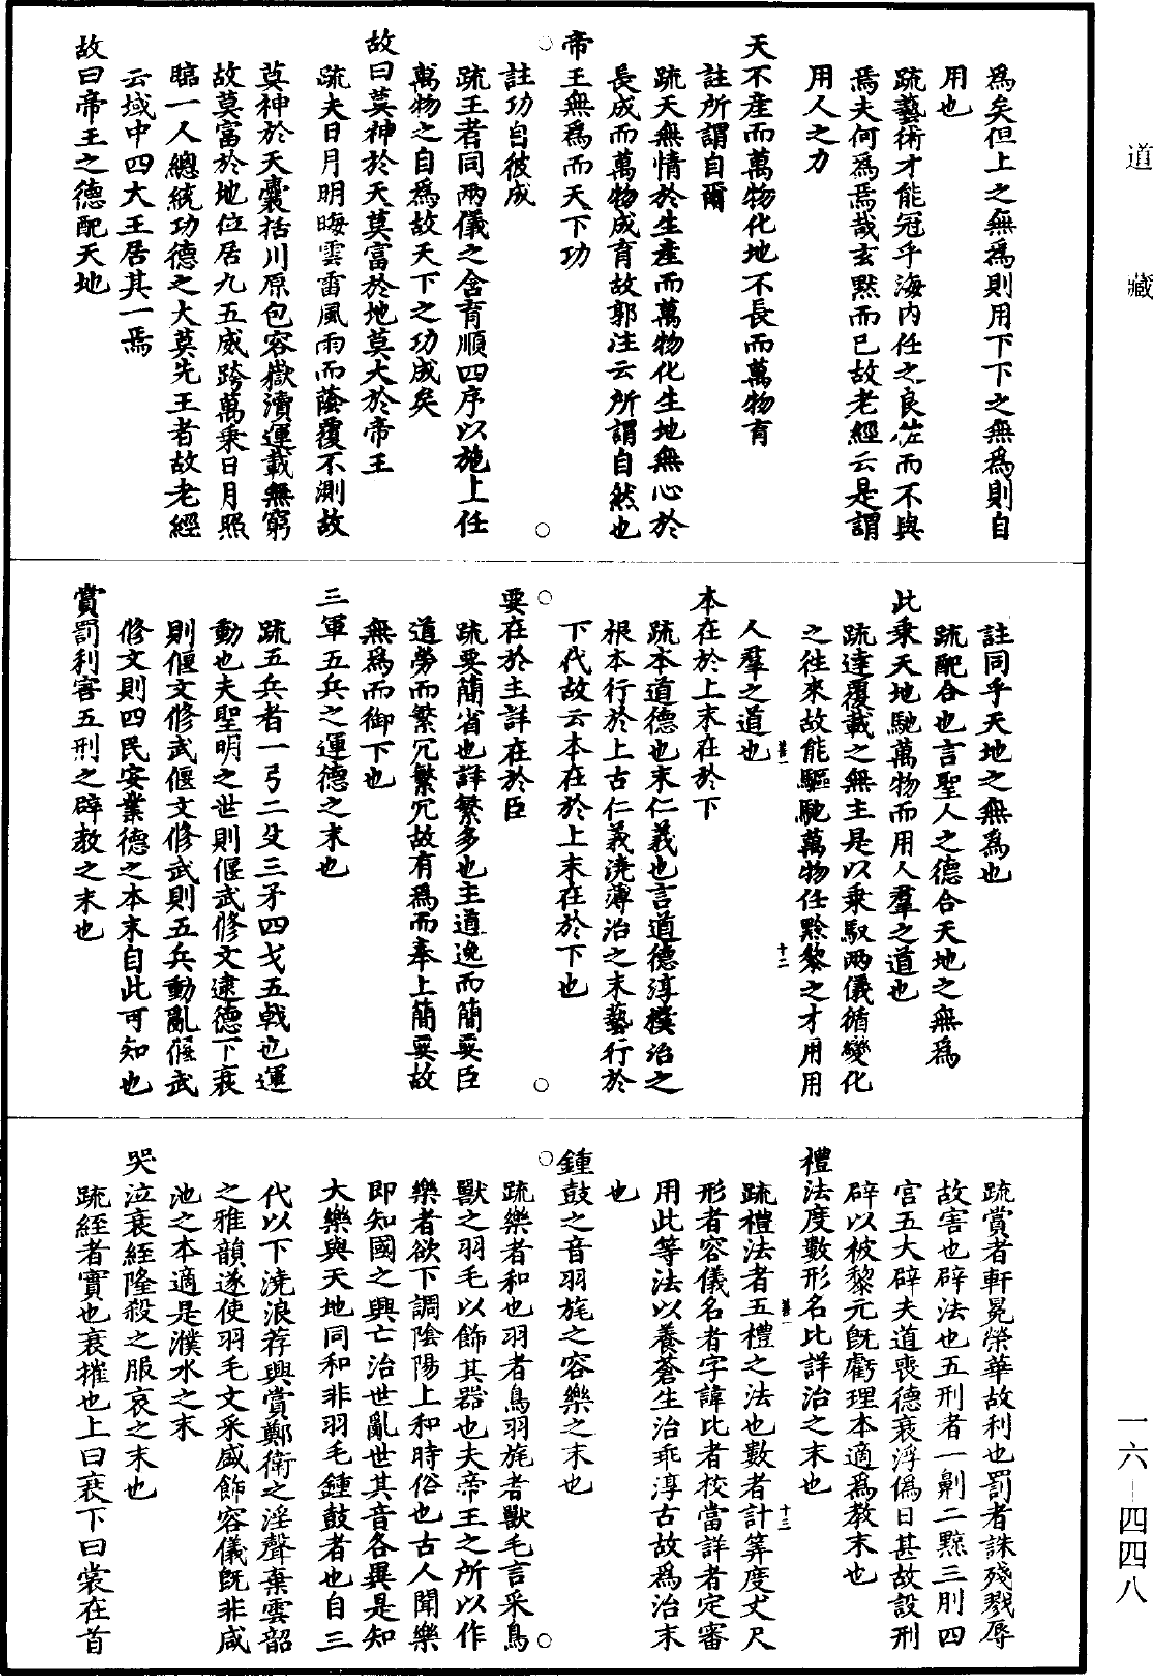 道藏
為矣但上之無為則用下下之無為則自
用也
疏藝術才能冠乎海內任之良佐而不與
焉夫何為焉哉玄默而已故老經云是謂
用人之力
天不產而萬物化地不長而萬物育
註所謂自爾
疏天無情於生產而萬物化生地無心於
長成而萬物成育故郭注云所謂自然也
帝王無為而天下功
註功自彼成
疏王者同兩儀之含育順四序以施上任
萬物之自為故天下之功成矣
故曰莫神於天莫富於地莫大於帝王
疏夫日月明晦雲雷風雨而蔭覆不測故
莫神於天囊括川原包容嶽瀆運載無窮
故莫富於地位居九五威跨萬乘日月照
臨一人總統功德之大莫先王者故老經
云域中四大王居其一焉
故曰帝王之德配天地
註同乎天地之無為也
疏配合也言聖人之德合天地之無為
此乘天地馳萬物而用人羣之道也
疏達覆載之無主是以乘馭兩儀循變化
之往來故能驅馳萬物任黔黎之才用用
人羣之道也
本在於上末在於下
疏本道德也末仁義也言道德淳樸治之
根本行於上古仁義澆薄治之末藝行於
下代故云本在於上末在於下也
要在於主詳在於臣
疏要簡省也詳繁多也主道逸而簡要臣
道勞而繁冗繁冗故有為而奉上簡要故
無為而御下也
三軍五兵之運德之末也
疏五兵者一弓二殳三矛四戈五戟也運
動也夫聖明之世則偃武修文逮德下衰
則偃文修武偃文修武則五兵動亂偃武
修文則四民安業德之本末自此可知也
賞罰利害五刑之辟教之末也
疏賞者軒冕榮華故利也罰者誅殘戮辱
故害也辟法也五刑者一劓二黥三刖四
宮五大辟夫道喪德衰浮偽日甚故設刑
辟以被黎元既虧理本適為教末也
禮法度數形名比詳治之末也
疏禮法者五禮之法也數者計筭度丈尺
形者容儀名者字諱比者校當詳者定審
用此等法以養蒼生治乖淳古故為治末
也
鍾鼓之音羽旄之容樂之末也
疏樂者和也羽者鳥羽旄者獸毛言采鳥
獸之羽毛以飾其器也夫帝王之所以作
樂者欲下調陰陽上和時俗也古人聞樂
即知國之興亡治世亂世其音各異是知
大樂與天地同和非羽毛鍾鼓者也自三
代以下澆浪荐興賞鄭衛之淫聲棄雲韶
之雅韻遂使羽毛文采盛飾容儀既非咸
池之本適是濮水之末
哭泣衰絰隆殺之服哀之末也
疏絰者實也衰摧也上曰衰下曰裳在首
十二
十三
一六—四四八